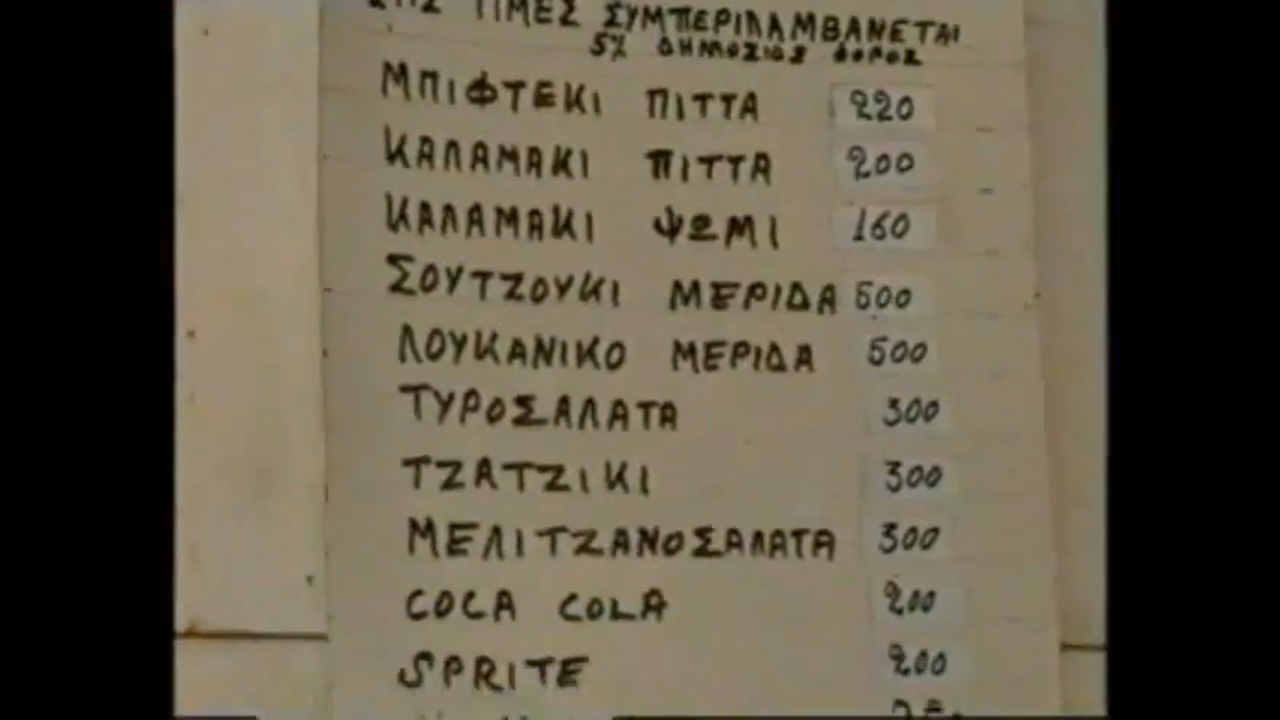 ΣΤΙΣ ΤΙΜΕΣ ΣΥΜΠΕΡΙΛΑΜΒΑΝΕΤΑΙ
5% ΔΗΜΟΣΙΟΣ ΦΟΡΟΣ
ΜΠΙΦΤΕΚΙ ΠΙΤΤΑ 220
ΚΑΛΑΜΑΚΙ ΠΙΤΤΑ 200
ΚΑΛΑΜΑΚΙ ΨΩΜΙ 160
ΣΟΥΤΖΟΥΚΙ ΜΕΡΙΔΑ 500
ΛΟΥΚΑΝΙΚΟ ΜΕΡΙΔΑ 500
ΤΥΡΟΣΑΛΑΤΑ 300
ΤΖΑΤΖΙΚΙ 300
ΜΕΛΙΤΖΑΝΟΣΑΛΑΤΑ 300
COCA COLA 200
SPRITE 200